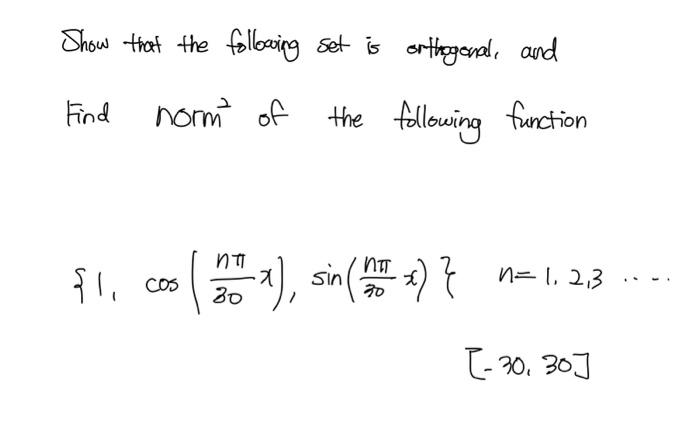 Show that the following set is orthogonal, and
Find norm² of the following function
{1, cos(nπ/30 x), sin(nπ/30 x)} n=1, 2,3 ....
[-30, 30]